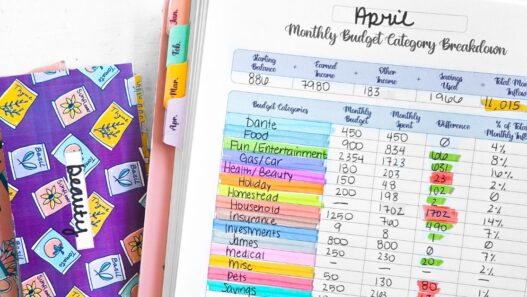 April
Monthly Budget Category Breakdown
Starting Balance + Earned Income + Other Income + Savings Used = Total Mon Inflow
886 7980 183 1966 11,015
Budget Categories Monthly Budget Monthly Spent Difference % of Total Monthly Inflow
Dante 450 450 0 4%
Food 900 834 66 8%
Fun / Entertainment 2354 1723 631 16%
Gas/car 180 203 23 2%
Health/Beauty 150 48 102 0
Holiday 200 198 2 2%
Homestead - - - 0
Household - 1702 1702 14%
Insurance 1250 760 490 7%
Investments 9 8 1 0
James 800 800 0 7%
Medical 250 230 20 2%
Misc - - - 0
Pets 50 130 80 1%
Savings
Jan.
Feb.
Mar.
Apr.
Beauty
Tomato
Basil